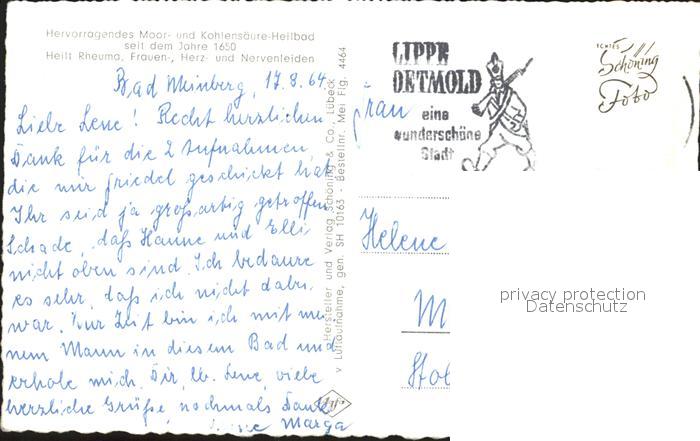 Hervorragendes Moor- und Kohlensäure-Heilbad
seit dem Jahre 1650
Heilt Rheuma, Frauen-, Herz- und Nervenleiden
Bad Meinberg, 17.8.64.
Liebe Lene! Recht herzlichen
Dank für die 2 Aufnahmen,
die mir Friedel geschickt hat.
Ihr seid ja großartig getroffen.
Schade, daß Hanne und Elli
nicht oben sind. Ich bedaure
es sehr, daß ich nicht dabei
war. Zur Zeit bin ich mit mei
nem Mann in diesem Bad und
erhole mich. Dir, lb. Lene, viele
herzliche Grüße, nochmals Dank
Marga
Hersteller und Verlag Schöning & Co., Lübeck
Luftaufnahme, gen. SH 10165 - Bestellnr. Mei Flg. 4464
LIPPE
DETMOLD
eine
wunderschöne
Stadt
ECHTES
Schöning
Foto
Frau
Helene
M
Stol
privacy protection
Datenschutz